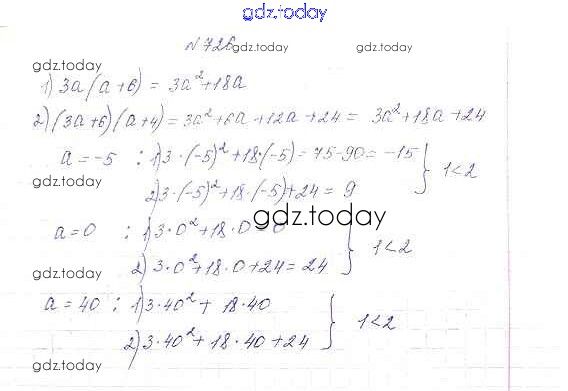 gdz.today
N 726
gdz.today
gdz.today
gdz.today
1) 3a(a+6) = 3a²+18a
2) (3a+6)(a+4) = 3a²+6a+12a+24 = 3a²+18a+24
a = -5 : 1) 3·(-5)²+18·(-5) = 75-90 = -15
gdz.today
2) 3·(-5)²+18·(-5)+24 = 9
} 1<2
gdz.today
a = 0 : 1) 3·0²+18·0 = 0
2) 3·0²+18·0+24 = 24
} 1<2
gdz.today
a = 40 : 1) 3·40² + 18·40
2) 3·40² + 18·40 + 24
} 1<2
gdz.today